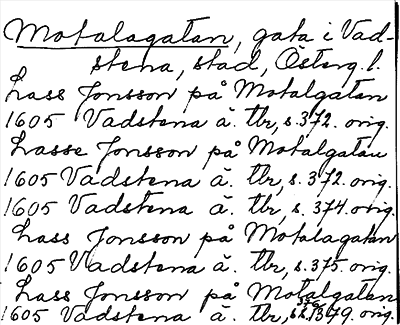 Motalagatan, gata i Vad-
stena, stad, Österg. l.
Lass Jonsson på Motalgatan
1605 Vadstena ä. tbr, s. 372. orig.
Lasse Jonsson på Motalgatan
1605 Vadstena ä. tbr, s. 372. orig.
1605 Vadstena ä. tbr, s. 374. orig.
Lass Jonsson på Motalagatan
1605 Vadstena ä. tbr, s. 375. orig.
Lass Jonsson på Motalgatan
1605 Vadstena ä. tbr, 379. orig.